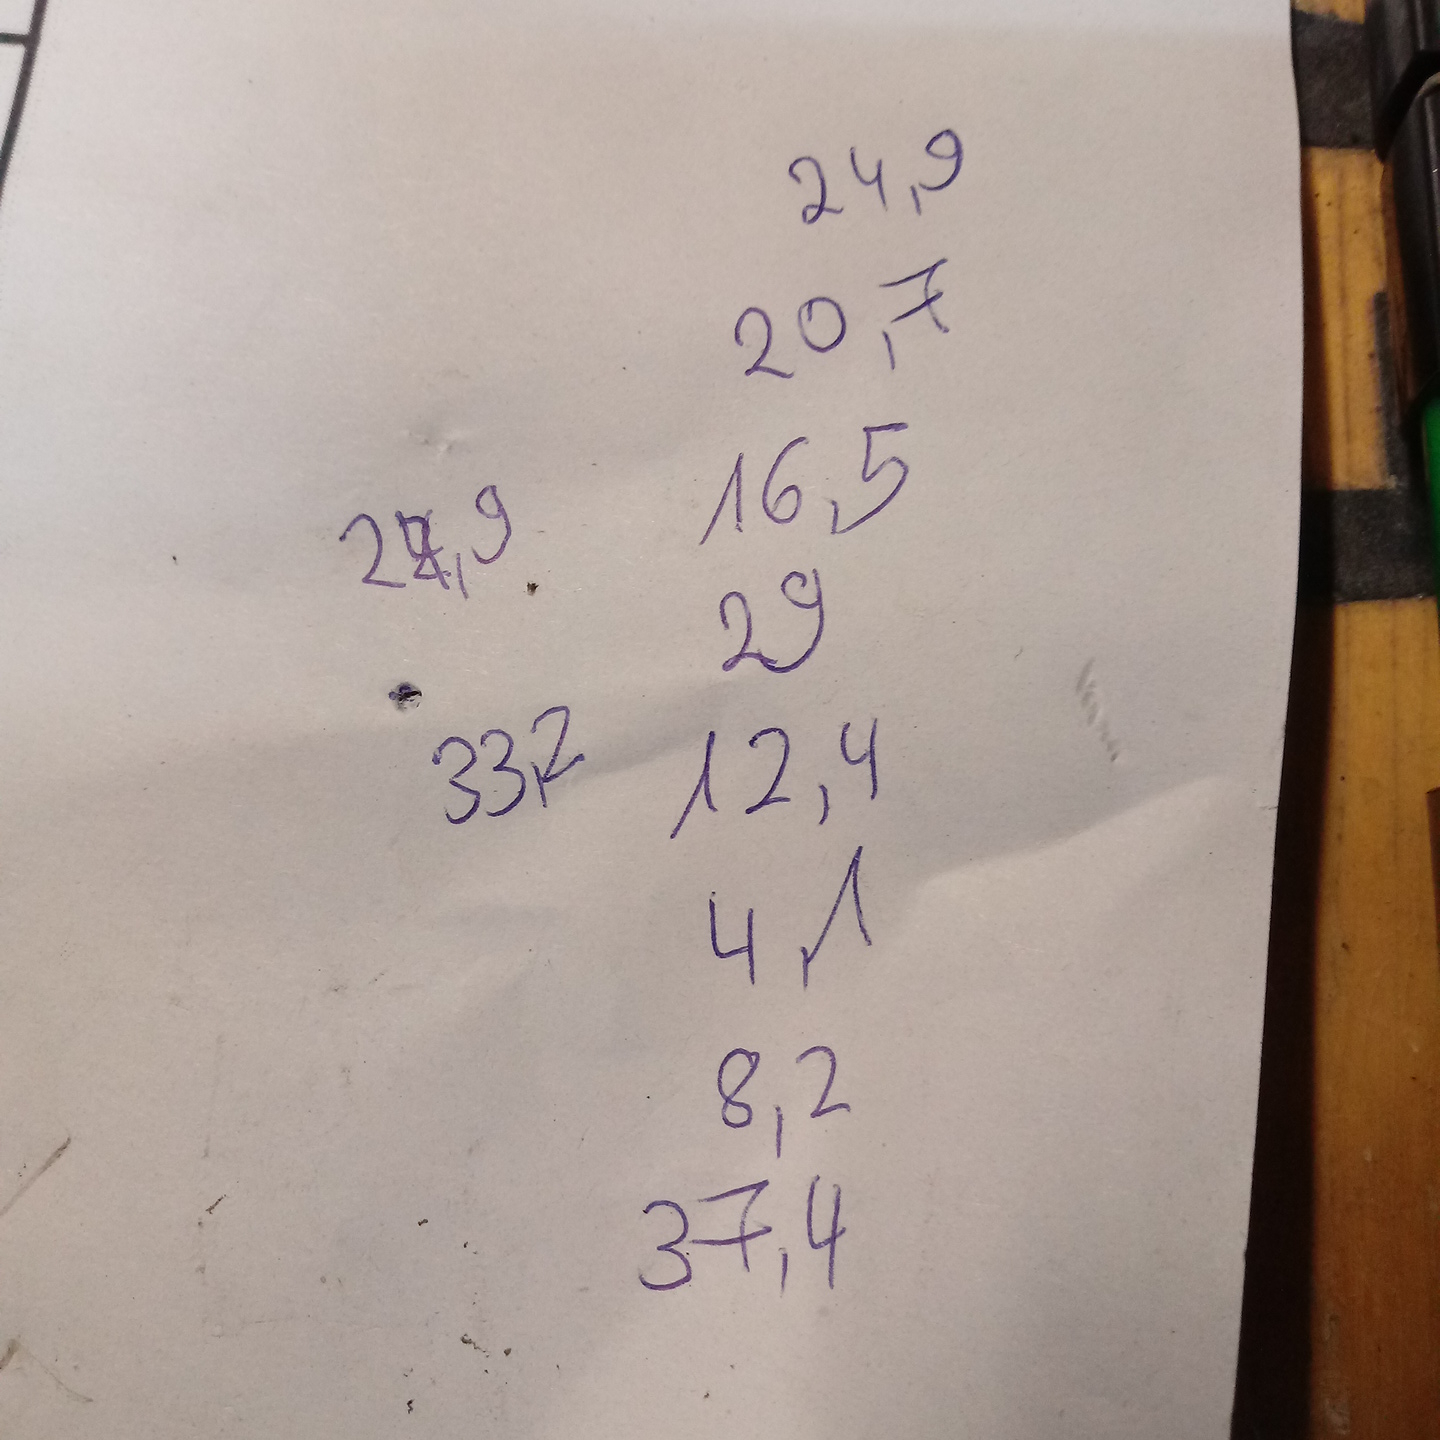 24,9
20,7
16,5
29
12,4
4,1
8,2
37,4
33,2